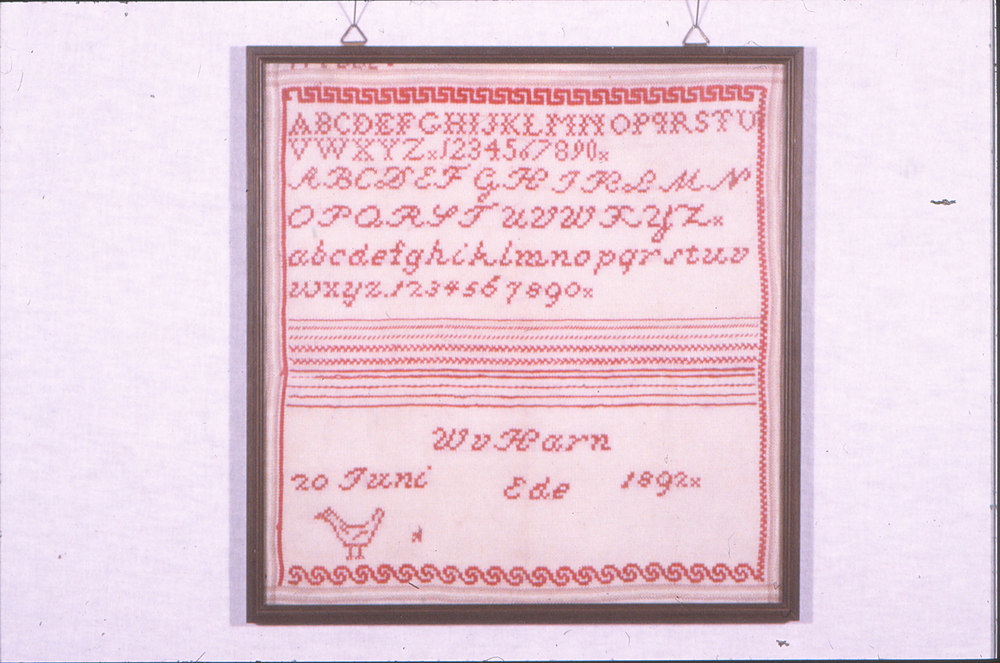 ABCDEFGHIJKLMNOPQRSTU
VWXYZx1234567890x
ABCDEFGHIJKLMN
OPQRSTUVWXYZx
abcdefghiklmnopqrstuv
wxyz.1234567890x
WvHarn
20 Juni Ede 1892x